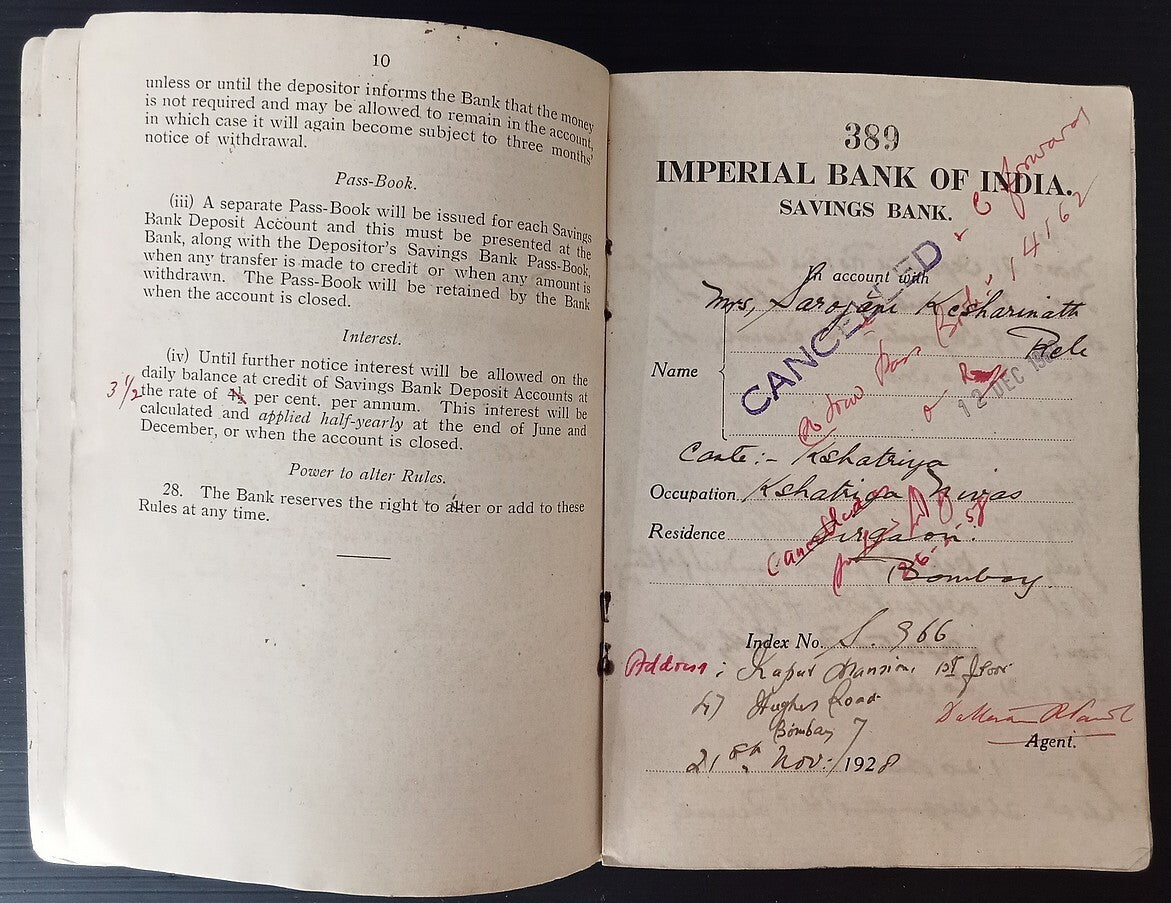 10
unless or until the depositor informs the Bank that the money
is not required and may be allowed to remain in the account,
in which case it will again become subject to three months'
notice of withdrawal.
Pass-Book.
(iii) A separate Pass-Book will be issued for each Savings
Bank Deposit Account and this must be presented at the
Bank, along with the Depositor's Savings Bank Pass-Book,
when any transfer is made to credit or when any amount is
withdrawn. The Pass-Book will be retained by the Bank
when the account is closed.
Interest.
(iv) Until further notice interest will be allowed on the
daily balance at credit of Savings Bank Deposit Accounts at
3 1/2 the rate of per cent. per annum. This interest will be
calculated and applied half-yearly at the end of June and
December, or when the account is closed.
Power to alter Rules.
28. The Bank reserves the right to alter or add to these
Rules at any time.
389
IMPERIAL BANK OF INDIA.
SAVINGS BANK.
forward
14162
In account with
CANCELLED
Mrs, Sarojani Kesharinath
Rele
Name
12 DEC
Caste:- Kshatriya
Occupation Kshatriya Niwas
Residence Girgaon
Bombay
Index No. S. 966
Address: Kapur Mansion, 1st floor
47 Hughes Road
Bombay 7
Agent.
21 Nov. 1928